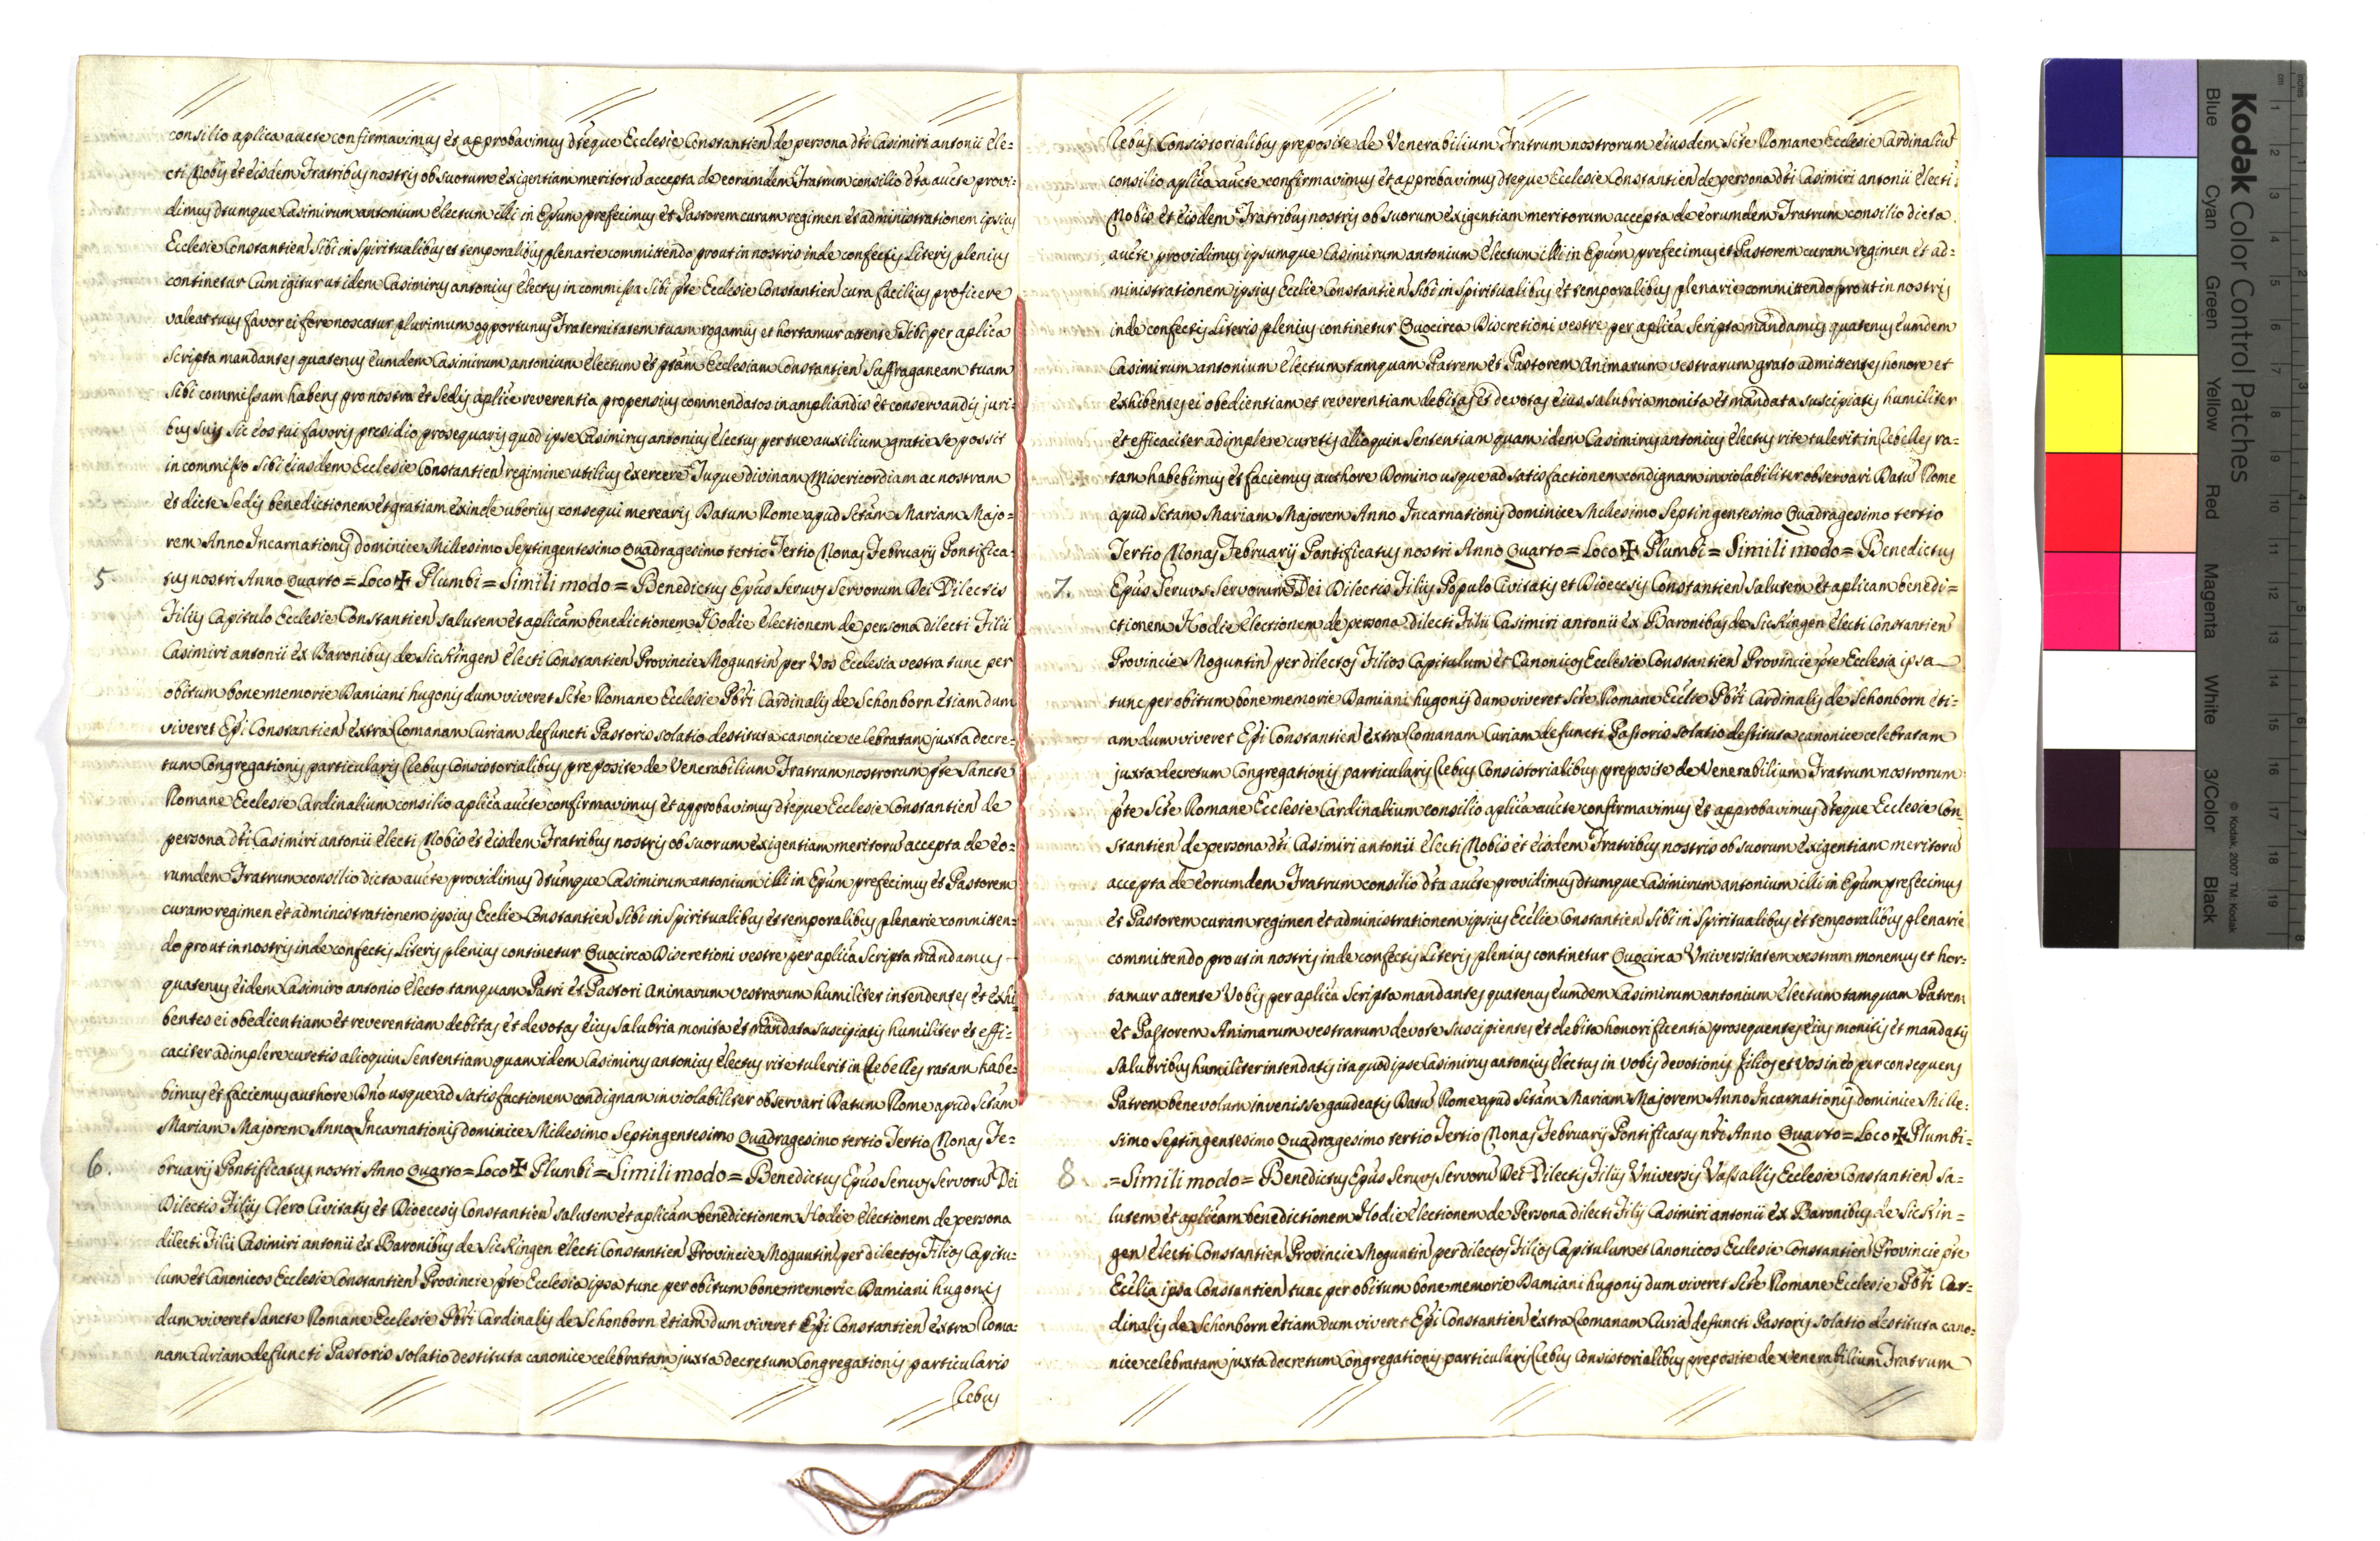 consilio aplica aucte confirmavimus et approbavimus dteque Ecclesie Constantien de persona dti Casimiri antonii Ele=
cti Nobis et eisdem Fratribus nostris ob suorum exigentiam meritoru accepta de eorumdem Fratrum consilio dta aucte provi=
dimus dtumque Casimirum antonium Electum illi in Epum prefecimus et Pastorem curam regimen et administrationem ipsius
Ecclesie Constantien Sibi in Spiritualibus et temporalibus plenarie committendo prout in nostris inde confectis Literis plenius
continetur Cum igitur ut idem Casimirus antonius Electus in commissa Sibi pte Ecclesie Constantien cura facilius proficere
valeat tuus favor ei fore noscatur plurimum opportunus Fraternitatem tuam rogamus et hortamur attente Tibi per aplica
Scripta mandantes quatenus eumdem Casimirum antonium Electum et ptam Ecclesiam Constantien Suffraganeam tuam
Sibi commissam habens pro nostra et Sedis aplice reverentia propensius commendatos in ampliandis et conservandis juri=
bus suis Sic eos tui favoris presidio prosequaris quod ipse Casimirus antonius Electus per tue auxilium gratie Se possit
in commisso Sibi eiusdem Ecclesie Constantien regimine utilius exercere Tuque divinam Misericordiam ac nostram
et dicte Sedis benedictionem et gratiam exinde uberius consequi merearis Datum Rome apud Sctam Mariam Majo=
rem Anno Incarnationis dominice Millesimo Septingentesimo Quadragesimo tertio Tertio Nonas Februarij Pontifica=
5 tus nostri Anno Quarto = Loco ✠ Plumbi = Simili modo = Benedictus Epus Servus Servorum Dei Dilectis
Filijs Capitulo Ecclesie Constantien salutem et aplicam benedictionem Hodie Electionem de persona dilecti Filii
Casimiri antonii ex Baronibus de Sickingen Electi Constantien Provincie Moguntin per Vos Ecclesia vestra tunc per
obitum bone memorie Damiani hugonis dum viveret Scte Romane Ecclesie Pbri Cardinalis de Schonborn etiam dum
viveret Epi Constantien extra Romanam Curiam defuncti Pastoris solatio destituta canonice celebratam juxta decre=
tum Congregationis particularis Rebus Consistorialibus preposite de Venerabilium Fratrum nostrorum pte Sancte
Romane Ecclesie Cardinalium consilio aplica aucte confirmavimus et approbavimus dteque Ecclesie Constantien de
persona dti Casimiri antonii Electi Nobis et eisdem Fratribus nostris ob suorum exigentiam meritoru accepta de eo=
rumdem Fratrum consilio dicta aucte providimus dtumque Casimirum antonium illi in Epum prefecimus et Pastorem
curam regimen et administrationem ipsius Ecclie Constantien Sibi in Spiritualibus et temporalibus plenarie committen=
do prout in nostris inde confectis Literis plenius continetur Quocirca Discretioni vestre per aplica Scripta mandamus
quatenus eidem Casimiro antonio Electo tamquam Patri et Pastori animarum vestrarum humiliter intendentes et exhi=
bentes ei obedientiam et reverentiam debitas et devotas eius Salubria monita et mandata suscipiatis humiliter et effi=
caciter adimplere curetis alioquin Sententiam quam idem Casimirus antonius Electus rite tulerit in Rebelles ratam habe=
bimus et faciemus authore Dno usque ad satisfactionem condignam inviolabiliter observari Datum Rome apud Sctam
Mariam Majorem Anno Incarnationis dominice Millesimo Septingentesimo Quadragesimo tertio Tertio Nonas Fe=
6. bruarij Pontificatus nostri Anno Quarto = Loco ✠ Plumbi = Simili modo = Benedictus Epus Servus Servoru Dei
Dilectis Filijs Clero Civitatis et Dioecesis Constantien salutem et aplicam benedictionem Hodie Electionem de persona
dilecti Filii Casimiri antonii ex Baronibus de Sickingen Electi Constantien Provincie Moguntin per dilectos Filios Capitu=
lum et Canonicos Ecclesie Constantien Provincie pte Ecclesia ipsa tunc per obitum bone memorie Damiani hugonis
dum viveret Sancte Romane Ecclesie Pbri Cardinalis de Schonborn etiam dum viveret Epi Constantien extra Roma=
nam Curiam defuncti Pastoris solatio destituta canonice celebratam juxta decretum Congregationis particularis
Rebus
Rebus Consistorialibus preposite de Venerabilium Fratrum nostrorum eiusdem Scte Romane Ecclesie Cardinaliu
consilio aplica aucte confirmavimus et approbavimus dteque Ecclesie Constantien de persona dti Casimiri antonii Electi
Nobis et eisdem Fratribus nostris ob suorum exigentiam meritorum accepta de eorumdem Fratrum consilio dicta
aucte providimus ipsumque Casimirum antonium Electum illi in Epum prefecimus et Pastorem curam regimen et ad=
ministrationem ipsius Ecclie Constantien Sibi in Spiritualibus et temporalibus plenarie committendo prout in nostris
inde confectis Literis plenius continetur Quocirca Discretioni vestre per aplica Scripta mandamus quatenus eumdem
Casimirum antonium Electum tamquam Patrem et Pastorem Animarum vestrarum grato admittentes honore et
exhibentes ei obedientiam et reverentiam debitas et devotas eius salubria monita et mandata suscipiatis humiliter
et efficaciter adimplere curetis alioquin Sententiam quam idem Casimirus antonius Electus rite tulerit in Rebelles ra=
tam habebimus et faciemus authore Domino usque ad satisfactionem condignam inviolabiliter observari Datu Rome
apud Sctam Mariam Majorem Anno Incarnationis dominice Millesimo Septingentesimo Quadragesimo tertio
Tertio Nonas Februarij Pontificatus nostri Anno Quarto = Loco ✠ Plumbi = Simili modo = Benedictus
7. Epus Servus Servorum Dei Dilectis Filijs Populo Civitatis et Dioecesis Constantien salutem et aplicam benedi=
ctionem Hodie Electionem de persona dilecti Filii Casimiri antonii ex Baronibus de Sickingen Electi Constantien
Provincie Moguntin per dilectos Filios Capitulum et Canonicos Ecclesie Constantien Provincie pte Ecclesia ipsa
tunc per obitum bone memorie Damiani hugonis dum viveret Scte Romane Ecclie Pbri Cardinalis de Schonborn eti=
am dum viveret Epi Constantien extra Romanam Curiam defuncti Pastoris solatio destituta canonice celebratam
juxta decretum Congregationis particularis Rebus Consistorialibus preposite de Venerabilium Fratrum nostrorum
pte Scte Romane Ecclesie Cardinalium consilio aplica aucte confirmavimus et approbavimus dteque Ecclesie Con=
stantien de persona dti Casimiri antonii Electi Nobis et eisdem Fratribus nostris ob suorum exigentiam meritoru
accepta de eorumdem Fratrum consilio dta aucte providimus dtumque Casimirum antonium illi in Epum prefecimus
et Pastorem curam regimen et administrationem ipsius Ecclie Constantien Sibi in Spiritualibus et temporalibus plenarie
committendo prout in nostris inde confectis Literis plenius continetur Quocirca Universitatem vestram monemus et hor=
tamur attente Vobis per aplica Scripta mandantes quatenus eumdem Casimirum antonium Electum tamquam Patrem
et Pastorem Animarum vestrarum devote suscipientes et debita honorificentia prosequentes eius monitis et mandatis
salubribus humiliter intendatis ita quod ipse Casimirus antonius Electus in vobis devotionis filios et vos in eo per consequens
Patrem benevolum invenisse gaudeatis Datu Rome apud Sctam Mariam Majorem Anno Incarnationis dominice Mille=
simo Septingentesimo Quadragesimo tertio Tertio Nonas Februarij Pontificatus nri Anno Quarto = Loco ✠ Plumbi=
8. = Simili modo = Benedictus Epus Servus Servoru Dei Dilectis Filijs Universis Vassallis Ecclesie Constantien sa=
lutem et aplicam benedictionem Hodie Electionem de Persona dilecti Filij Casimiri antonii ex Baronibus de Sickin=
gen Electi Constantien Provincie Moguntin per dilectos Filios Capitulum et Canonicos Ecclesie Constantien Provincie pte
Ecclia ipsa Constantien tunc per obitum bone memorie Damiani hugonis dum viveret Scte Romane Ecclesie Pbri Car=
dinalis de Schonborn etiam dum viveret Epi Constantien extra Romanam Curia defuncti Pastoris solatio destituta cano=
nice celebratam juxta decretum Congregationis particularis Rebus Consistorialibus preposite de Venerabilium Fratrum
Kodak Color Control Patches
Blue Cyan Green Yellow Red Magenta White 3/Color Black
© Kodak, 2007 TM: Kodak
cm 1 2 3 4 5 6 7 8 9 10 11 12 13 14 15 16 17 18 19
inches 1 2 3 4 5 6 7 8